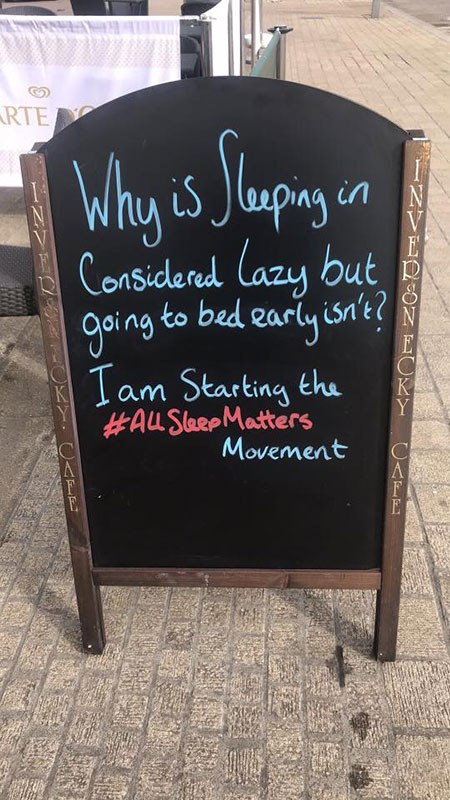 ARTE D'O
Why is Sleeping in
Considered Lazy but
going to bed early isn't?
I am Starting the
#AllSleepMatters
Movement
INVERSNECKY CAFE
INVERSNECKY CAFE